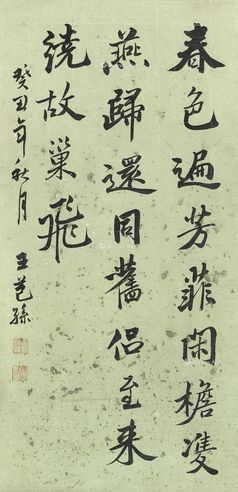 春色遍芳菲閑檐雙
燕歸還同舊侶至来
繞故巢飛
癸丑年秋月
王芑孫